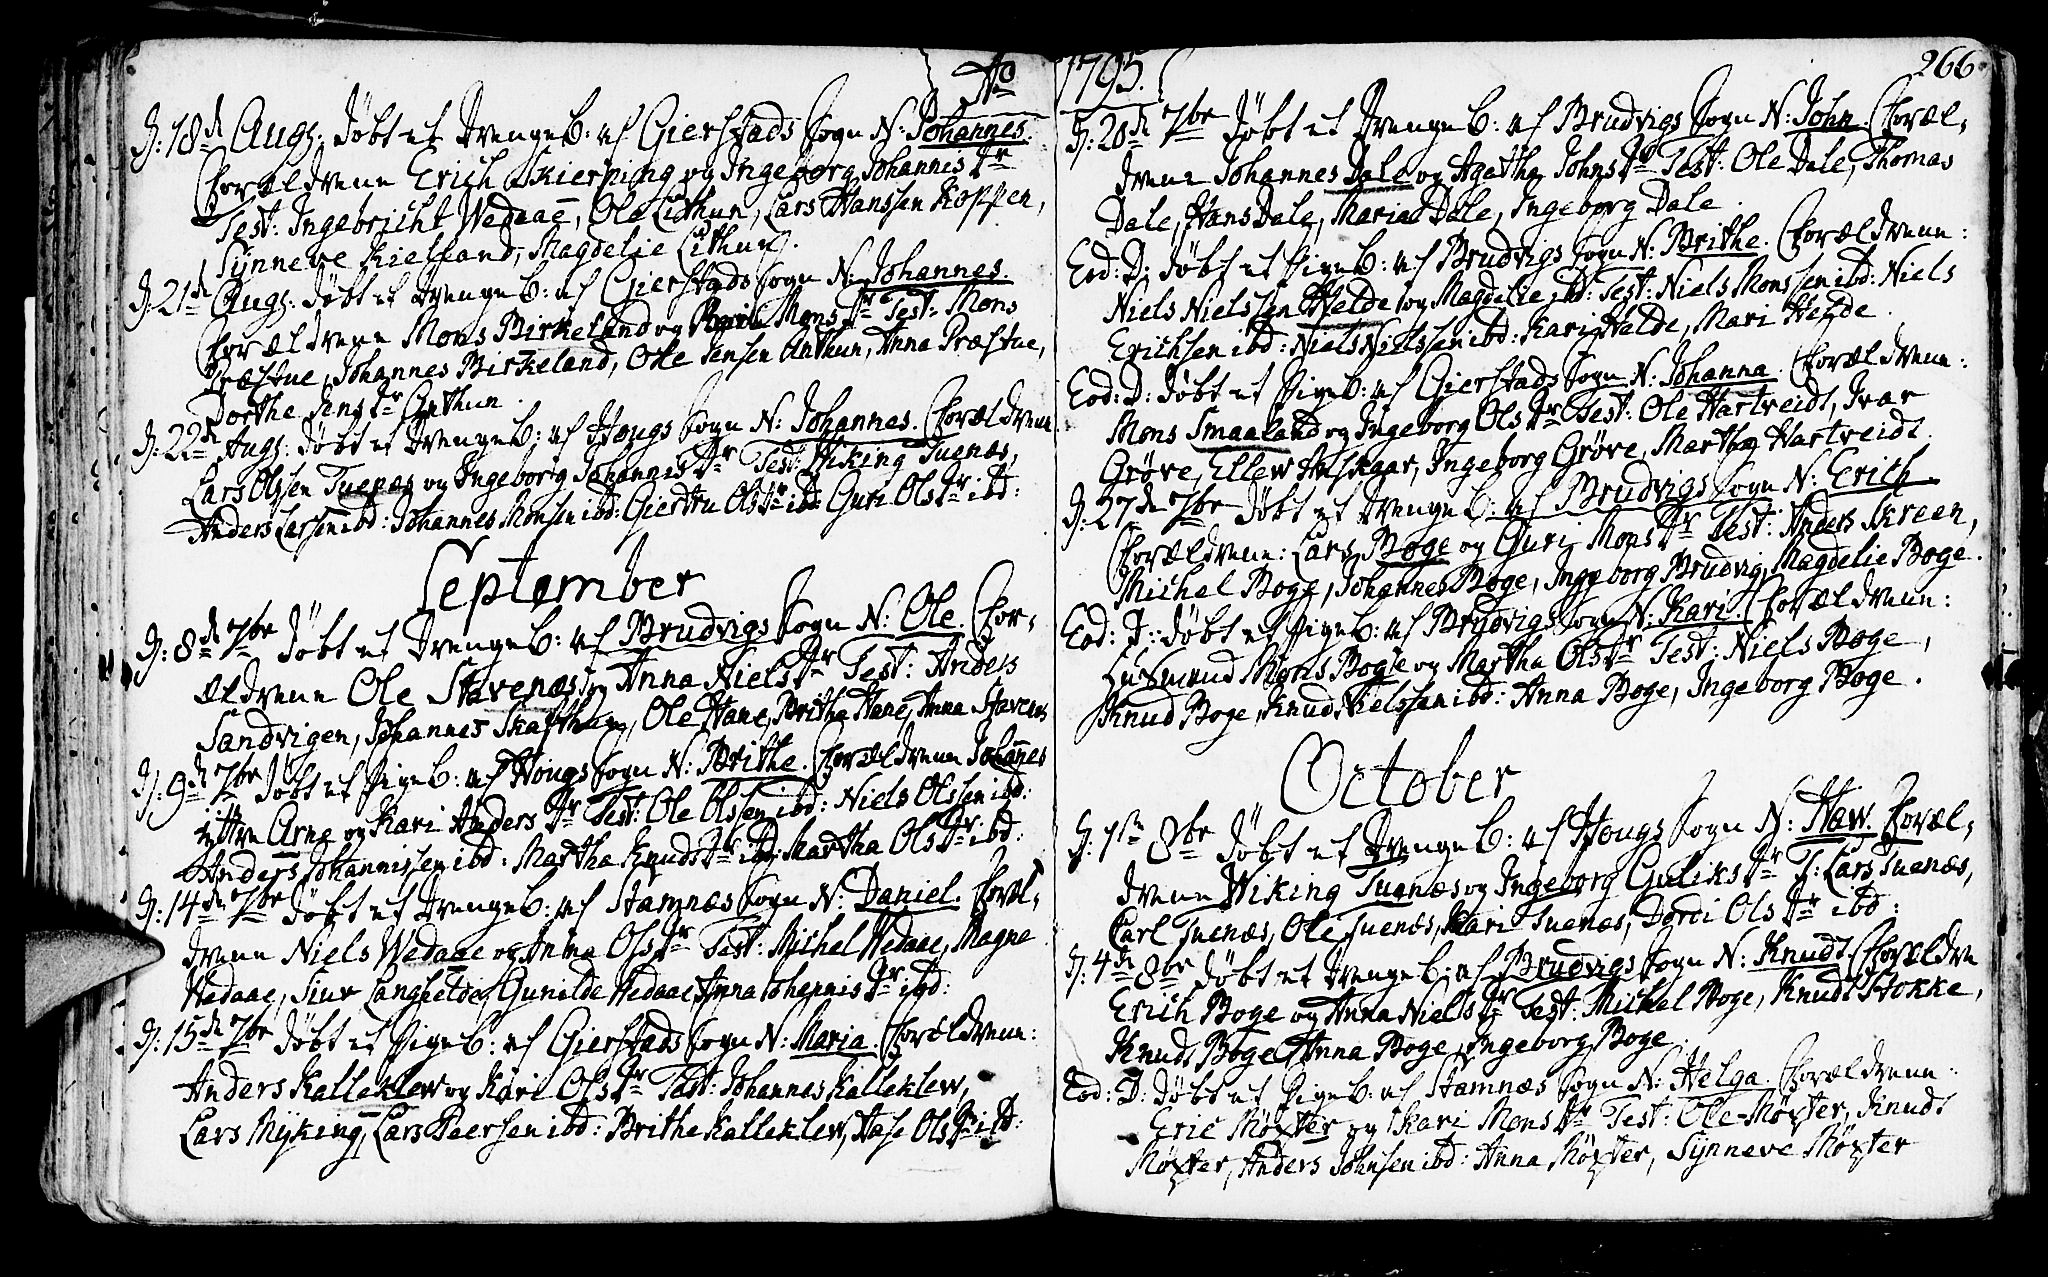 Ao
D: 18de Augs: døbt et DrengeB: af Gierstads Sogn N: Johannes.
Forældrene Erich Skierping og Ingeborg Johannis Dr
Test: Ingebricht Wedaae, Ole Lithun, Lars Hanssen Koppen,
Synneve Kielland, Magdelie Lithun.
D: 21de Augs: døbt et DrengeB: af Gierstads Sogn N: Johannes.
Forældrene Mons Birkeland og Mons Dr Test: Mons
Præstue, Johannes Birkeland, Ole Jensen Authun, Anna Præstue,
Dorthe Jens Dr Authun.
D: 22de Augs: døbt et DrengeB: af Hougs Sogn N: Johannes. Forældrene
Lars Olssen Tuenæs og Ingeborg Johannis Dr Test: Wiking Tuenæs,
Anders Larssen ibd: Johannes Monsen ibd: Giertru Ols Dr ibd: Guri Ols Dr ibd:
September
D: 8de 7br døbt et DrengeB: af Brudvigs Sogn N: Ole. For-
ældrene Ole Stavenæs og Anna Niels Dr Test: Anders
Sandvigen, Johannes Skafthun, Ole Hane, Brithe Hane, Anna Stavenæs
D: 9de 7br døbt et PigeB: af Hougs Sogn N: Brithe. Forældrene Johannes
Arne og Kari Anders Dr Test: Ole Olssen ibd: Niels Olssen ibd:
Anders Johannissen ibd: Martha Knuds Dr ibd: Martha Ols Dr ibd:
D: 14de 7br døbt et DrengeB: af Stamnæs Sogn N: Daniel. Foræl-
drene Niels Wedaae og Anna Ols Dr Test: Michel Wedaae, Magne
Wedaae, Siur Langhelde, Gunilde Wedaae, Anna Johannis Dr ibd:
D: 15de 7br døbt et PigeB: af Gierstads Sogn N: Maria. Forældrene:
Anders Kalleklew og Kari Ols Dr Test: Johannes Kalleklew,
Lars Myking, Lars Peersen ibd: Brithe Kalleklew, Aase Ols Dr ibd:
1795.
266
D: 20de 7br døbt et DrengeB: af Brudvigs Sogn N: John. Foræl-
drene Johannes Dale og Agatha Johns Dr Test: Ole Dale, Thomas
Dale, Hans Dale, Maria Dale, Ingeborg Dale.
Eod: D: døbt et PigeB: af Brudvigs Sogn N: Brithe. Forældrene:
Niels Nielssen Helde og Magdelie ibd: Test: Niels Monssen ibd: Niels
Erichsen ibd: Niels Nielssen ibd: Kari Halde, Mari Helde.
Eod: D: døbt et PigeB: af Gierstads Sogn N: Johanna. Forældrene:
Mons Smaaland og Ingeborg Ols Dr Test: Ole Hartveidt, Ivar
Grøve, Ellew Aaskaar, Ingeborg Grøve, Martha Hartveidt.
D: 27de 7br døbt et DrengeB: af Brudvigs Sogn N: Erich
Forældrene: Lars Boge og Guri Mons Dr Test: Anders Skreen,
Michel Boge, Johannes Boge, Ingeborg Brudvig, Magdelie Boge.
Eod: D: døbt et PigeB: af Brudvigs Sogn N: Kari. Forældrene:
Husmand Mons Boge og Martha Ols Dr Test: Niels Boge,
Knud Boge, Knud Nielssen ibd: Anna Boge, Ingeborg Boge.
October
D: 1st 8br døbt et DrengeB: af Hougs Sogn N: Haw. Foræl-
drene Wiking Tuenæs og Ingeborg Guliks Dr T: Lars Tuenæs,
Carl Tuenæs, Ole Tuenæs, Kari Tuenæs, Dordi Ols Dr ibd:
D: 4de 8br døbt et DrengeB: af Brudvigs Sogn N: Knudt. Forældrene
Erich Boge og Anna Niels Dr Test: Michel Boge, Knudt Stokke,
Knudt Boge, Anna Boge, Ingeborg Boge.
Eod: D: døbt et PigeB: af Stamnæs Sogn N: Helga. Forældrene:
Eric Møxter og Kari Mons Dr Test: Ole Møxter, Knudt
Møxter, Anders Johnsen ibd: Anna Møxter, Synneve Møxter